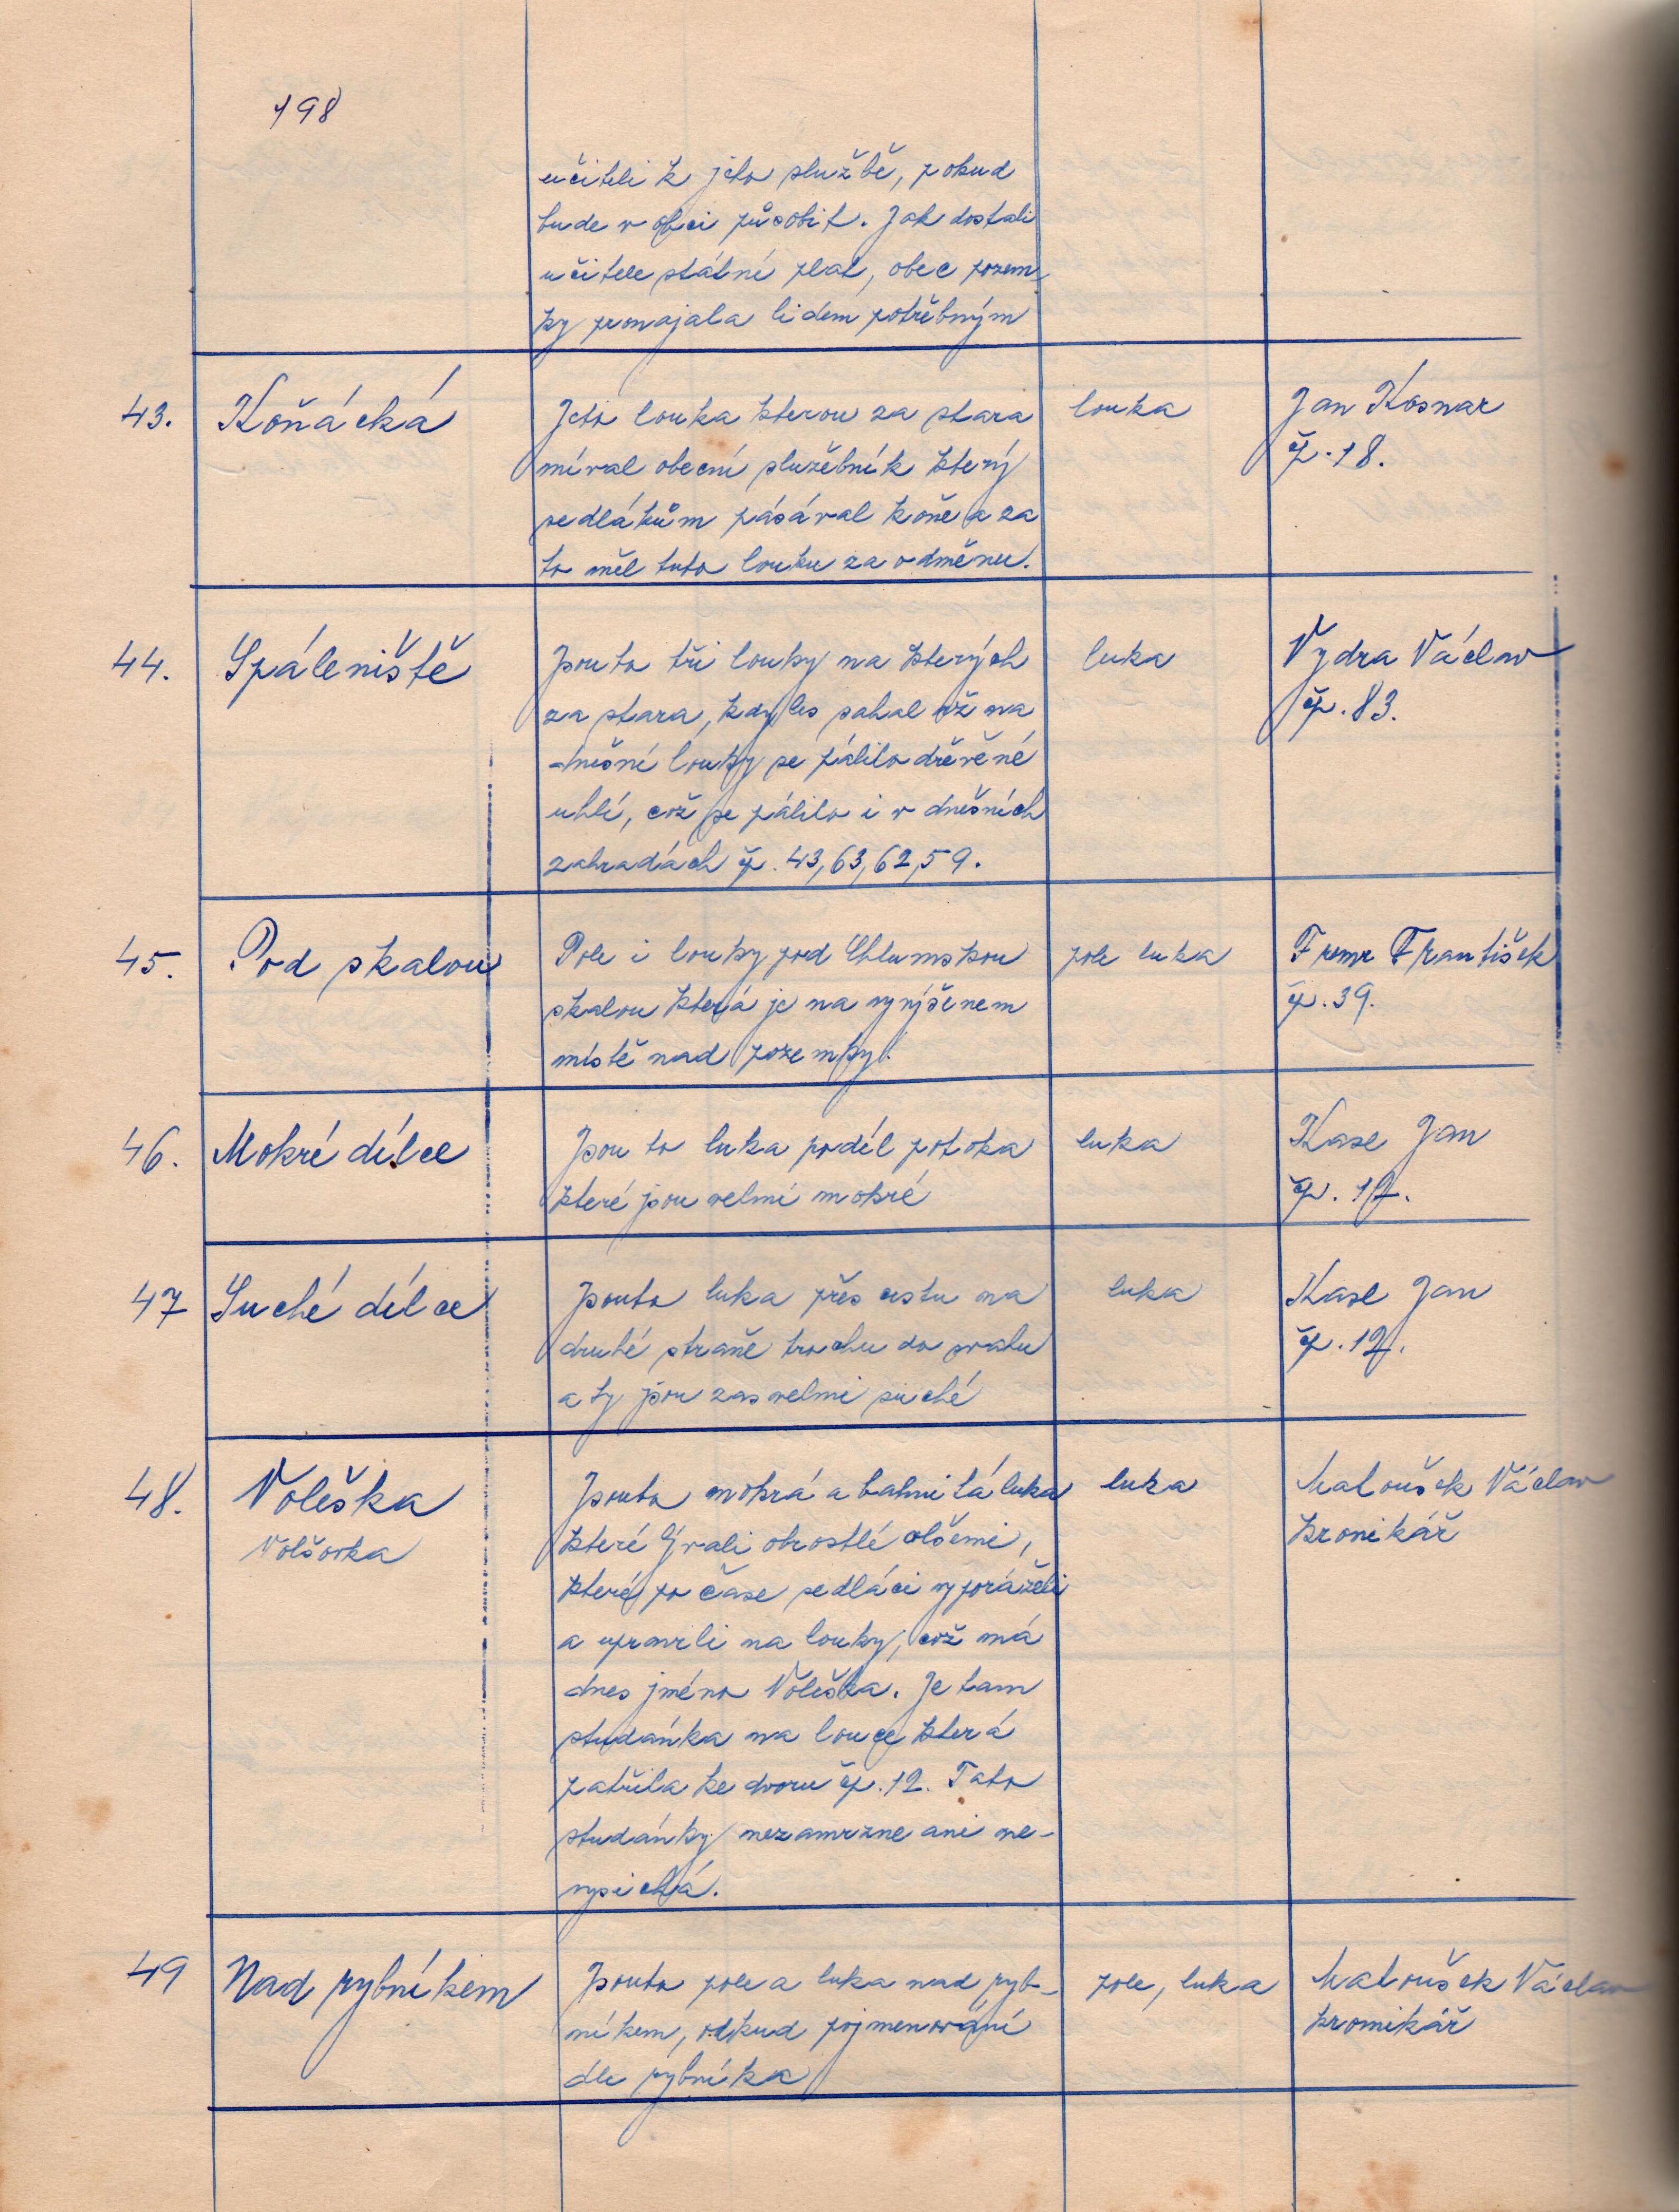 198
učiteli k jeho službě, pokud
bude v obci působit. Jak dostali
učitele státní plat, obec pozem-
ky pronajala lidem potřebným
43. Koňácká
Jeto louka kterou za stara
míval obecní služebník který
sedlákům pásával koně a za
to měl tuto louku za odměnu.
louka
Jan Kosnar
čp. 18.
44. Spáleniště
Jsouto tři louky na kterých
za stara, kdy les sahal až na
dnešní louky se pálilo dřevěné
uhlí, což se pálilo i v dnešních
zahradách čp. 43, 63, 62, 59.
luka
Vydra Václav
čp. 83.
45. Pod skalou
Pole i louky pod Chlumskou
skalou která je na vyvýšenem
místě nad pozemky.
pole luka
Fremr František
čp. 39.
46. Mokré dílce
Jsou to luka podél potoka
které jsou velmi mokré
luka
Kase Jan
čp. 12.
47 Suché dílce
Jsouto luka přes cestu na
druhé straně trochu do svahu
a ty jsou zas velmi suché
luka
Kase Jan
čp. 12.
48. Voleška
Volšovka
Jsouto mokrá a bahnitá luka
které bývali obrostlé olšemi,
které po čase sedláci vyporáželi
a upravili na louky, což má
dnes jméno Voleška. Je tam
studánka na louce která
patřila ke dvoru čp. 12. Tato
studánky nezamrzne ani ne-
vysichá.
luka
Matoušek Václav
kronikář
49 Nad rybníkem
Jsouto pole a luka nad ryb-
níkem, odkud pojmenování
dle rybníka
pole, luka
Matoušek Václav
kronikář